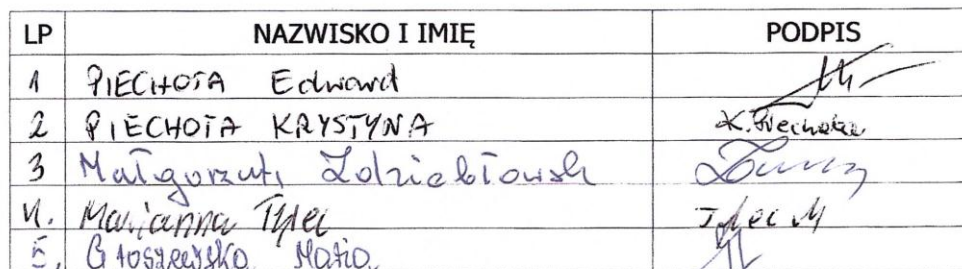 LP NAZWISKO I IMIĘ PODPIS
1 PIECHOTA Edward
2 PIECHOTA KRYSTYNA K. Piechota
3 Małgorzata Zdziebłowsk
4. Marianna Tylec Tylec M
5. Maria